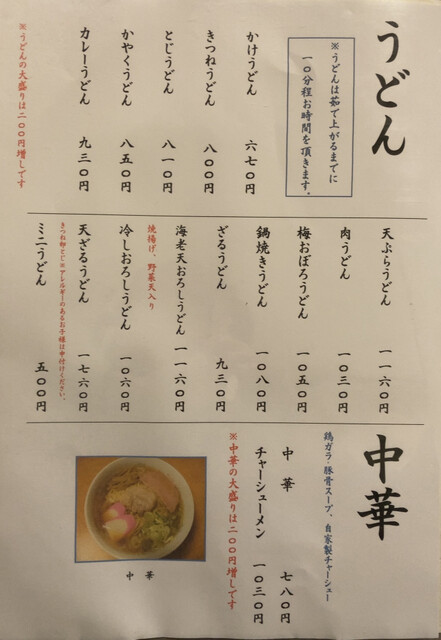 うどん
※うどんは茹で上がるまでに
一〇分程お時間を頂きます。
かけうどん 六七〇円
きつねうどん 八〇〇円
とじうどん 八一〇円
かやくうどん 八五〇円
カレーうどん 九三〇円
※うどんの大盛りは二〇〇円増しです
天ぷらうどん 一一六〇円
肉うどん 一〇三〇円
梅おぼろうどん 一〇五〇円
鍋焼きうどん 一〇八〇円
ざるうどん 九三〇円
海老天おろしうどん 一一六〇円
焼揚げ、野菜天入り
冷しおろしうどん 一〇六〇円
天ざるうどん 一七六〇円
きつね卵とじ※アレルギーのあるお子様は申付けください。
ミニうどん 五〇〇円
中華
鶏ガラ・豚骨スープ、自家製チャーシュー
中華 七八〇円
チャーシューメン 一〇三〇円
※中華の大盛りは二〇〇円増しです
中華